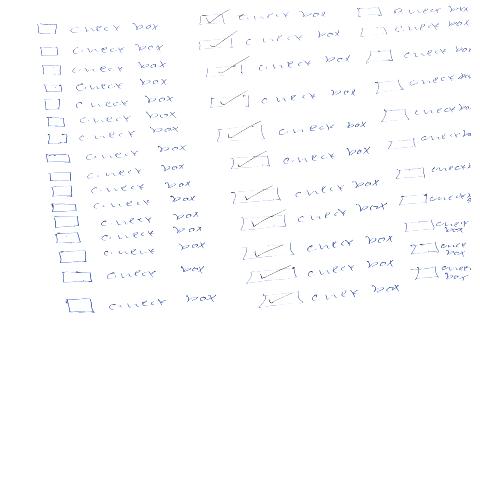 check box
check box
check box
check box
check box
check box
check box
check box
check box
check box
check box
check box
check box
check box
check box
check box
check box
check box
check box
check box
check box
check box
check box
check box
check box
check box
check box
check box
check box
check box
check bo
check bo
check b
check
check b
check box
check box
check box